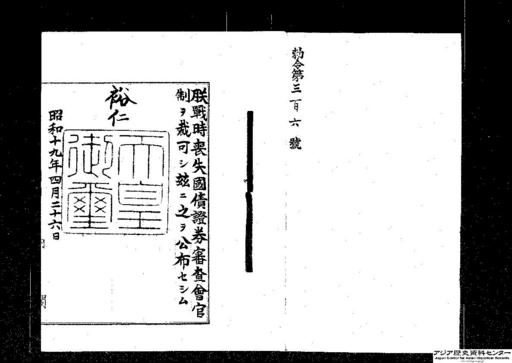 勅令第三百六號
朕戰時喪失國債證券審查會官
制ヲ裁可シ茲ニ之ヲ公布セシム
裕仁
天皇
御璽
昭和十九年四月二十六日
アジア歴史資料センター
Japan Center for Asian Historical Records